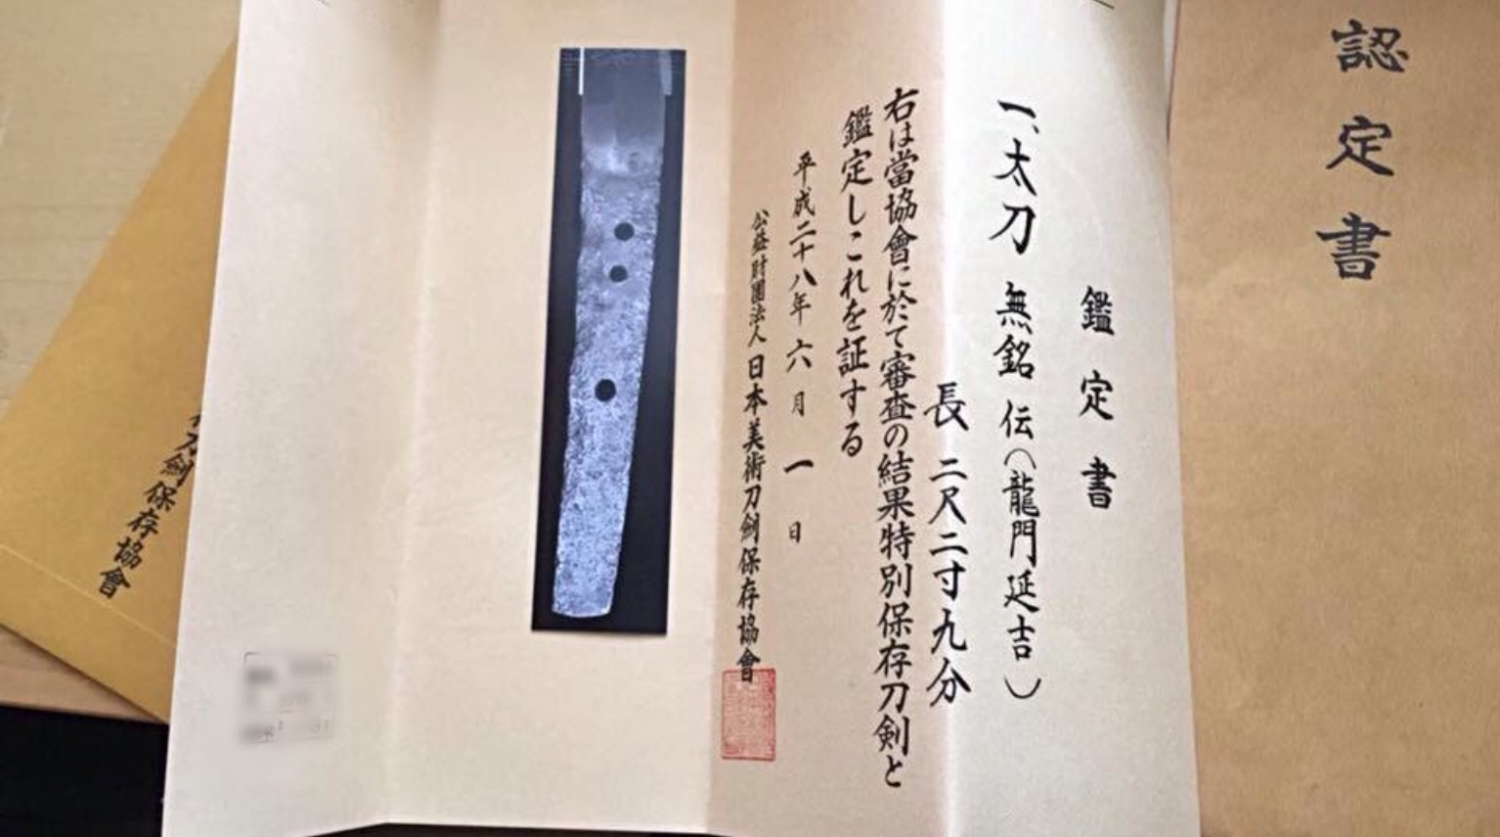 認定書
鑑定書
一、太刀 無銘 伝(龍門延吉)
長 二尺二寸九分
右は當協會に於て審査の結果特別保存刀剣と
鑑定しこれを証する
平成二十八年六月一日
公益財團法人 日本美術刀剣保存協會
刀剣保存協會